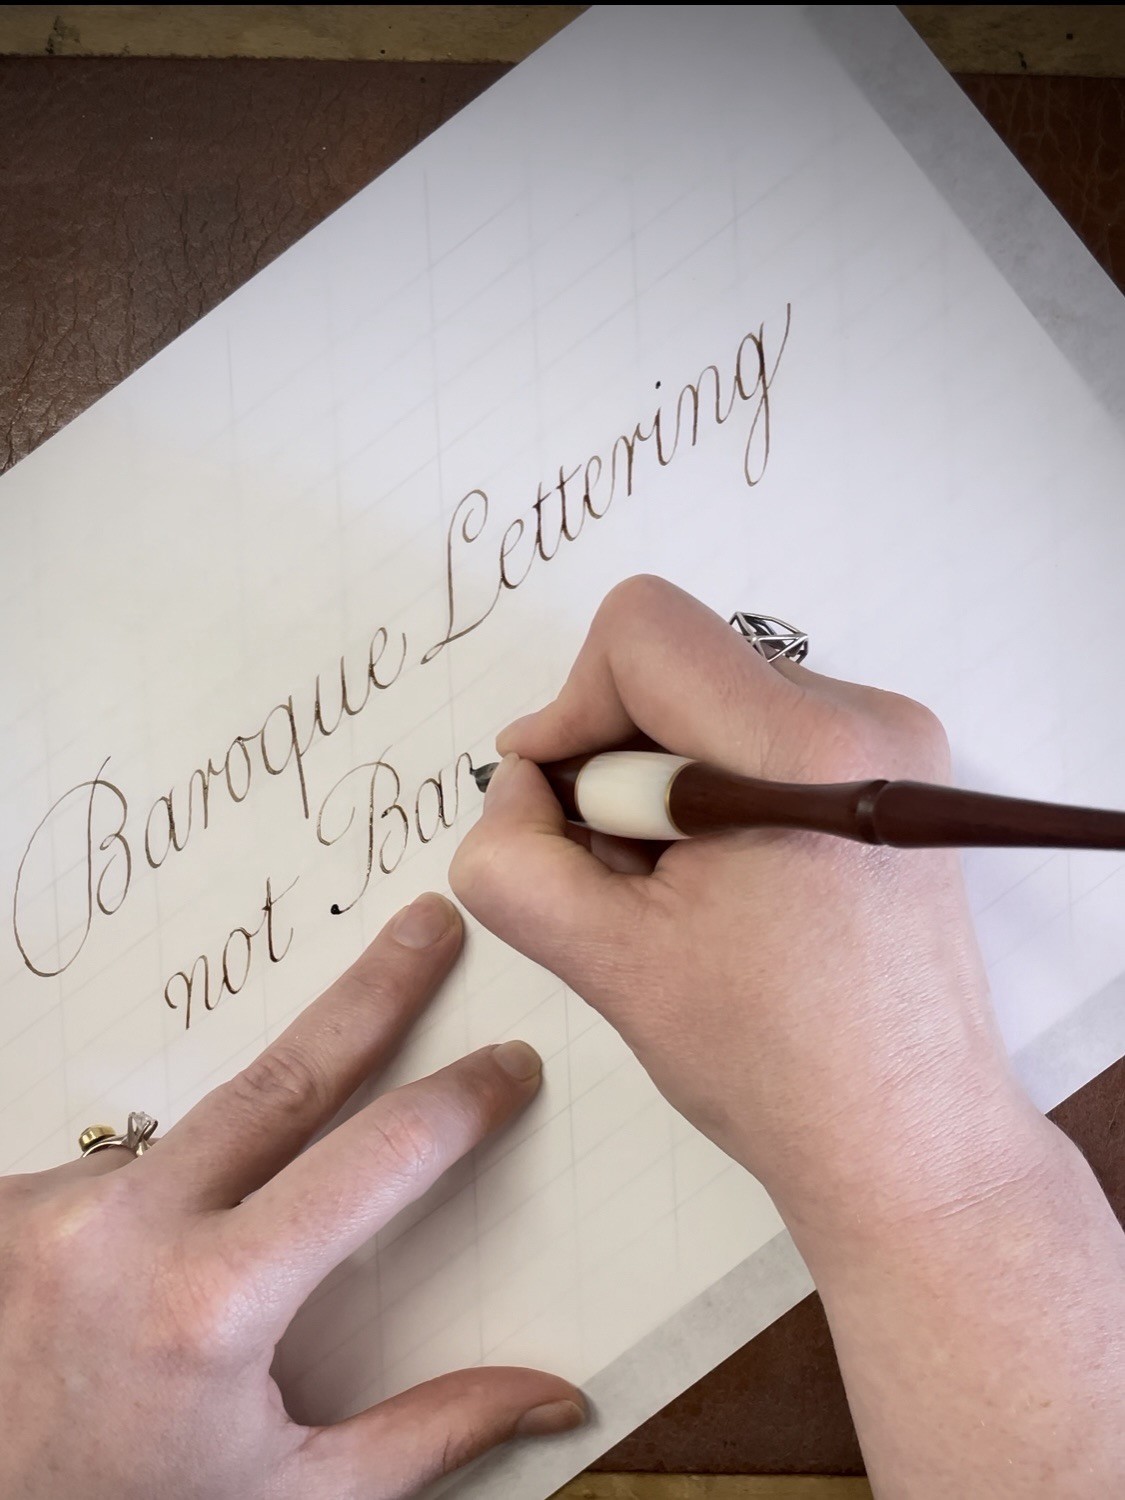 Baroque Lettering
not Bar